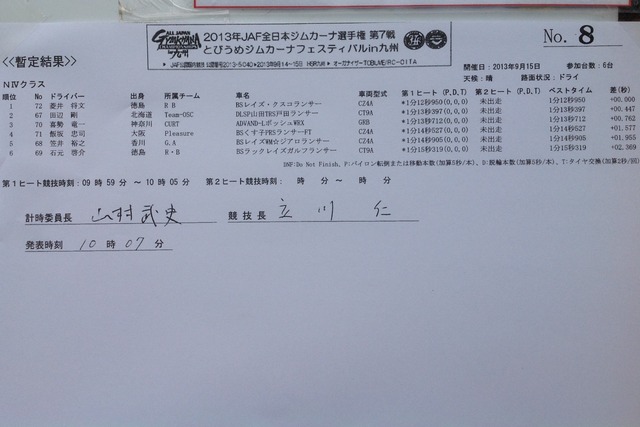 ALL JAPAN
GYMKHANA
CHAMPIONSHIP
in 九州
2013年JAF全日本ジムカーナ選手権 第7戦
とびうめジムカーナフェスティバルin九州
No. 8
<<暫定結果>>
開催日：2013年9月15日 参加台数：6台
天候：晴 路面状況：ドライ
NⅣクラス
順位 No ドライバー 出身 所属チーム 車名 車両型式 第1ヒート(P,D,T) 第2ヒート(P,D,T) ベストタイム 差(秒)
1 72 菱井 将文 徳島 R B BSレイズ・クスコランサー CZ4A *1分12秒950(0,0,0) 未出走 1分12秒950 +00.000
2 67 田辺 剛 北海道 Team-OSC DLSP山田TRS戸田ランサー CT9A *1分13秒397(0,0,0) 未出走 1分13秒397 +00.447
3 70 喜勢 竜一 神奈川 CURT ADVAND-LポッシュWRX GRB *1分13秒712(0,0,0) 未出走 1分13秒712 +00.762
4 71 飯坂 忠司 大阪 Pleasure BSくす子PRSランサーFT CZ4A *1分14秒527(0,0,0) 未出走 1分14秒527 +01.577
5 68 笠井 裕之 香川 G.A BSレイズWM☆ジアロランサー CZ4A *1分14秒905(0,0,0) 未出走 1分14秒905 +01.955
6 69 石元 啓介 徳島 R・B BSラックレイズガルフランサー CT9A *1分15秒319(0,0,0) 未出走 1分15秒319 +02.369
DNF:Do Not Finish, P:パイロン転倒または移動本数(加算5秒/本), D:脱輪本数(加算5秒/本), T:タイヤ交換(加算2秒/回)
第1ヒート競技時刻：09時59分 ～ 10時05分 第2ヒート競技時刻： 時 分～ 時 分
計時委員長 山村武史 競技長 立川 仁
発表時刻 10時07分